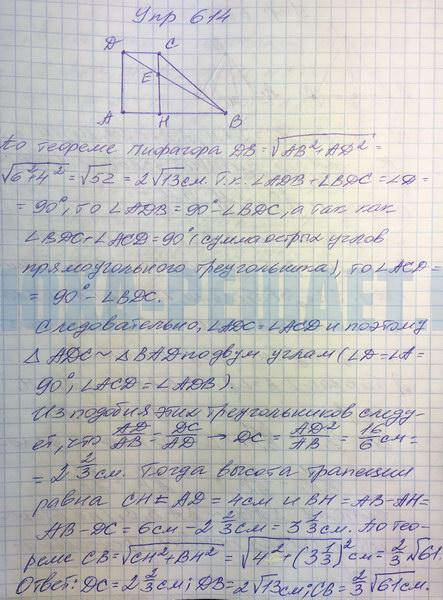 Упр 614
D C
E
A H B
По теореме Пифагора DB = √AB²+AD² =
√6²+4² = √52 = 2√13 см. Т.к. ∠ADB + ∠BDC = ∠D =
= 90°, то ∠ADB = 90° - ∠BDC, а так как
∠BDC + ∠ACD = 90° (сумма острых углов
прямоугольного треугольника), то ∠ACD =
= 90° - ∠BDC.
Следовательно, ∠ADC = ∠ACD и поэтому
△ ADC ~ △ BAD по двум углам (∠D = ∠A =
90°, ∠ACD = ∠ADB).
Из подобия этих треугольников следу-
ет, что AD/AB = DC/AD → DC = AD²/AB = 16/6 см =
= 2 2/3 см. Тогда высота трапеции
равна CH = AD = 4 см и BH = AB - AH =
AB - DC = 6 см - 2 2/3 см = 3 1/3 см. По тео-
реме CB = √CH² + BH² = √4² + (3 1/3)² см = 2/3 √61.
Ответ: DC = 2 2/3 см; DB = 2√13 см; CB = 2/3 √61 см.